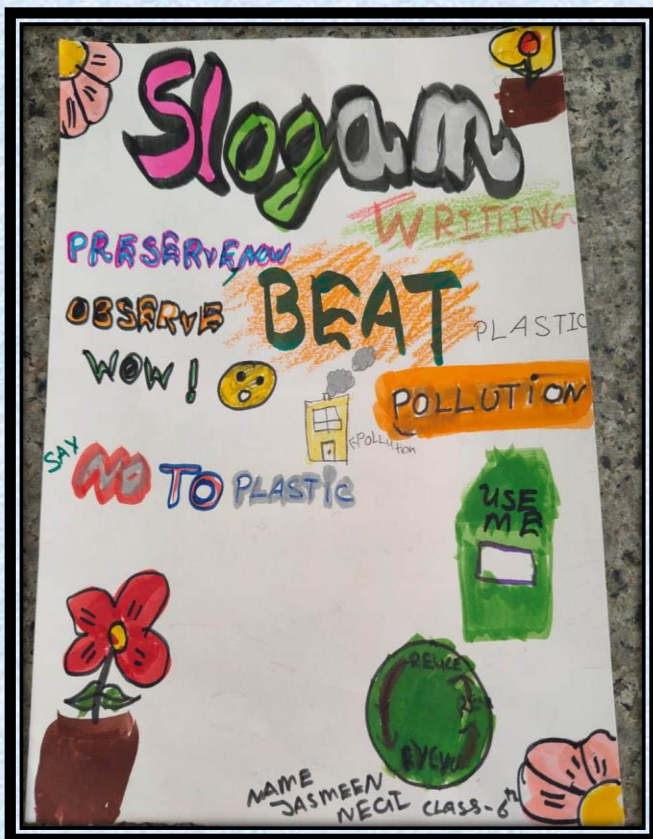 Slogan
WRITING
PRESERVE NOW
OBSERVE
WOW!
BEAT
PLASTIC
POLLUTION
Pollution
SAY
NO TO PLASTIC
USE
ME
NAME
JASMEEN
CLASS-6th